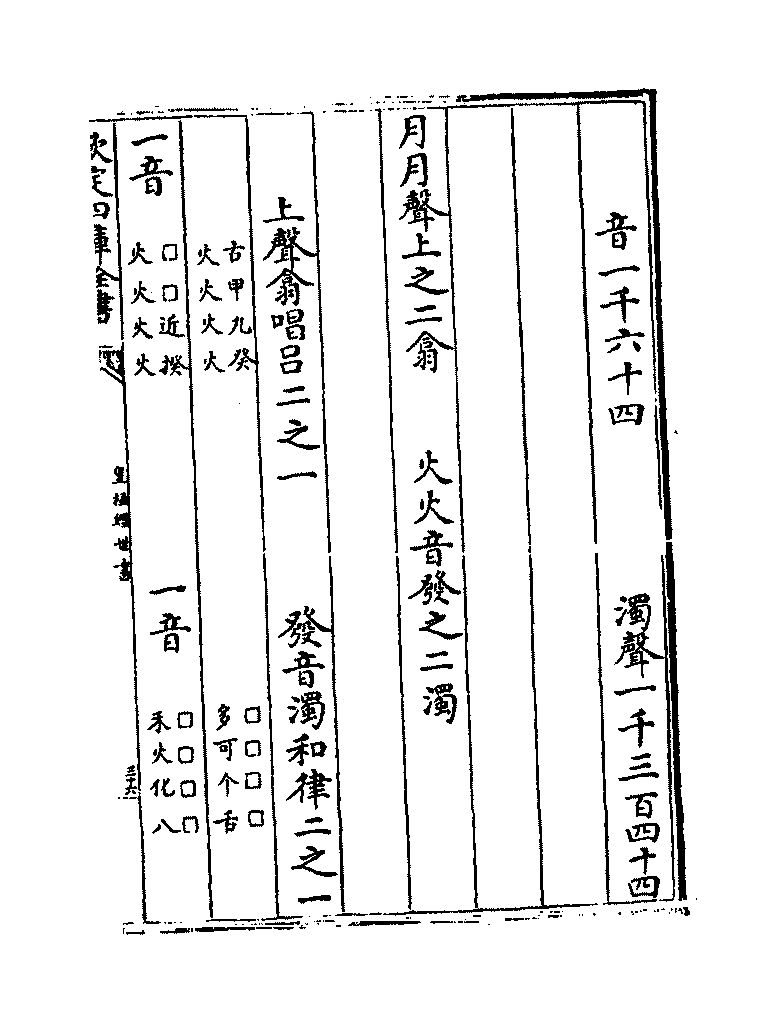 音一千六十四　濁聲一千三百四十四
月月聲上之二翕　火火音發之二濁
上聲翕唱呂二之一　發音濁和律二之一
古甲九癸　□□□□
火火火火　多可个舌
一音　□□近揆　一音　□□□□
火火火火　禾火化八
欽定四庫全書　皇極經世書　三十六